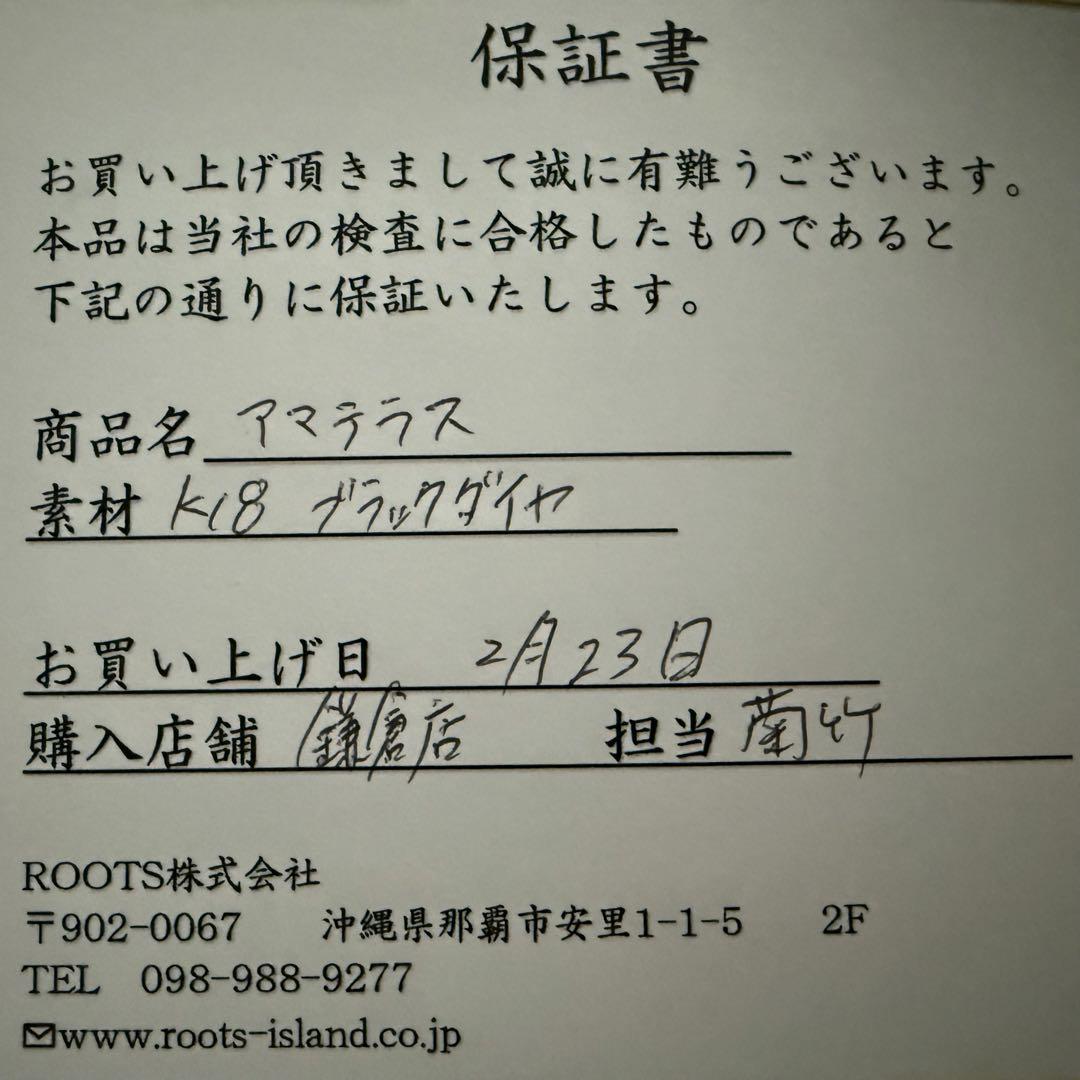 保証書
お買い上げ頂きまして誠に有難うございます。
本品は当社の検査に合格したものであると
下記の通りに保証いたします。
商品名 アマテラス
素材 K18 ブラックダイヤ
お買い上げ日 2月23日
購入店舗 鎌倉店 担当 菊竹
ROOTS株式会社
〒902-0067 沖縄県那覇市安里1-1-5 2F
TEL 098-988-9277
✉www.roots-island.co.jp